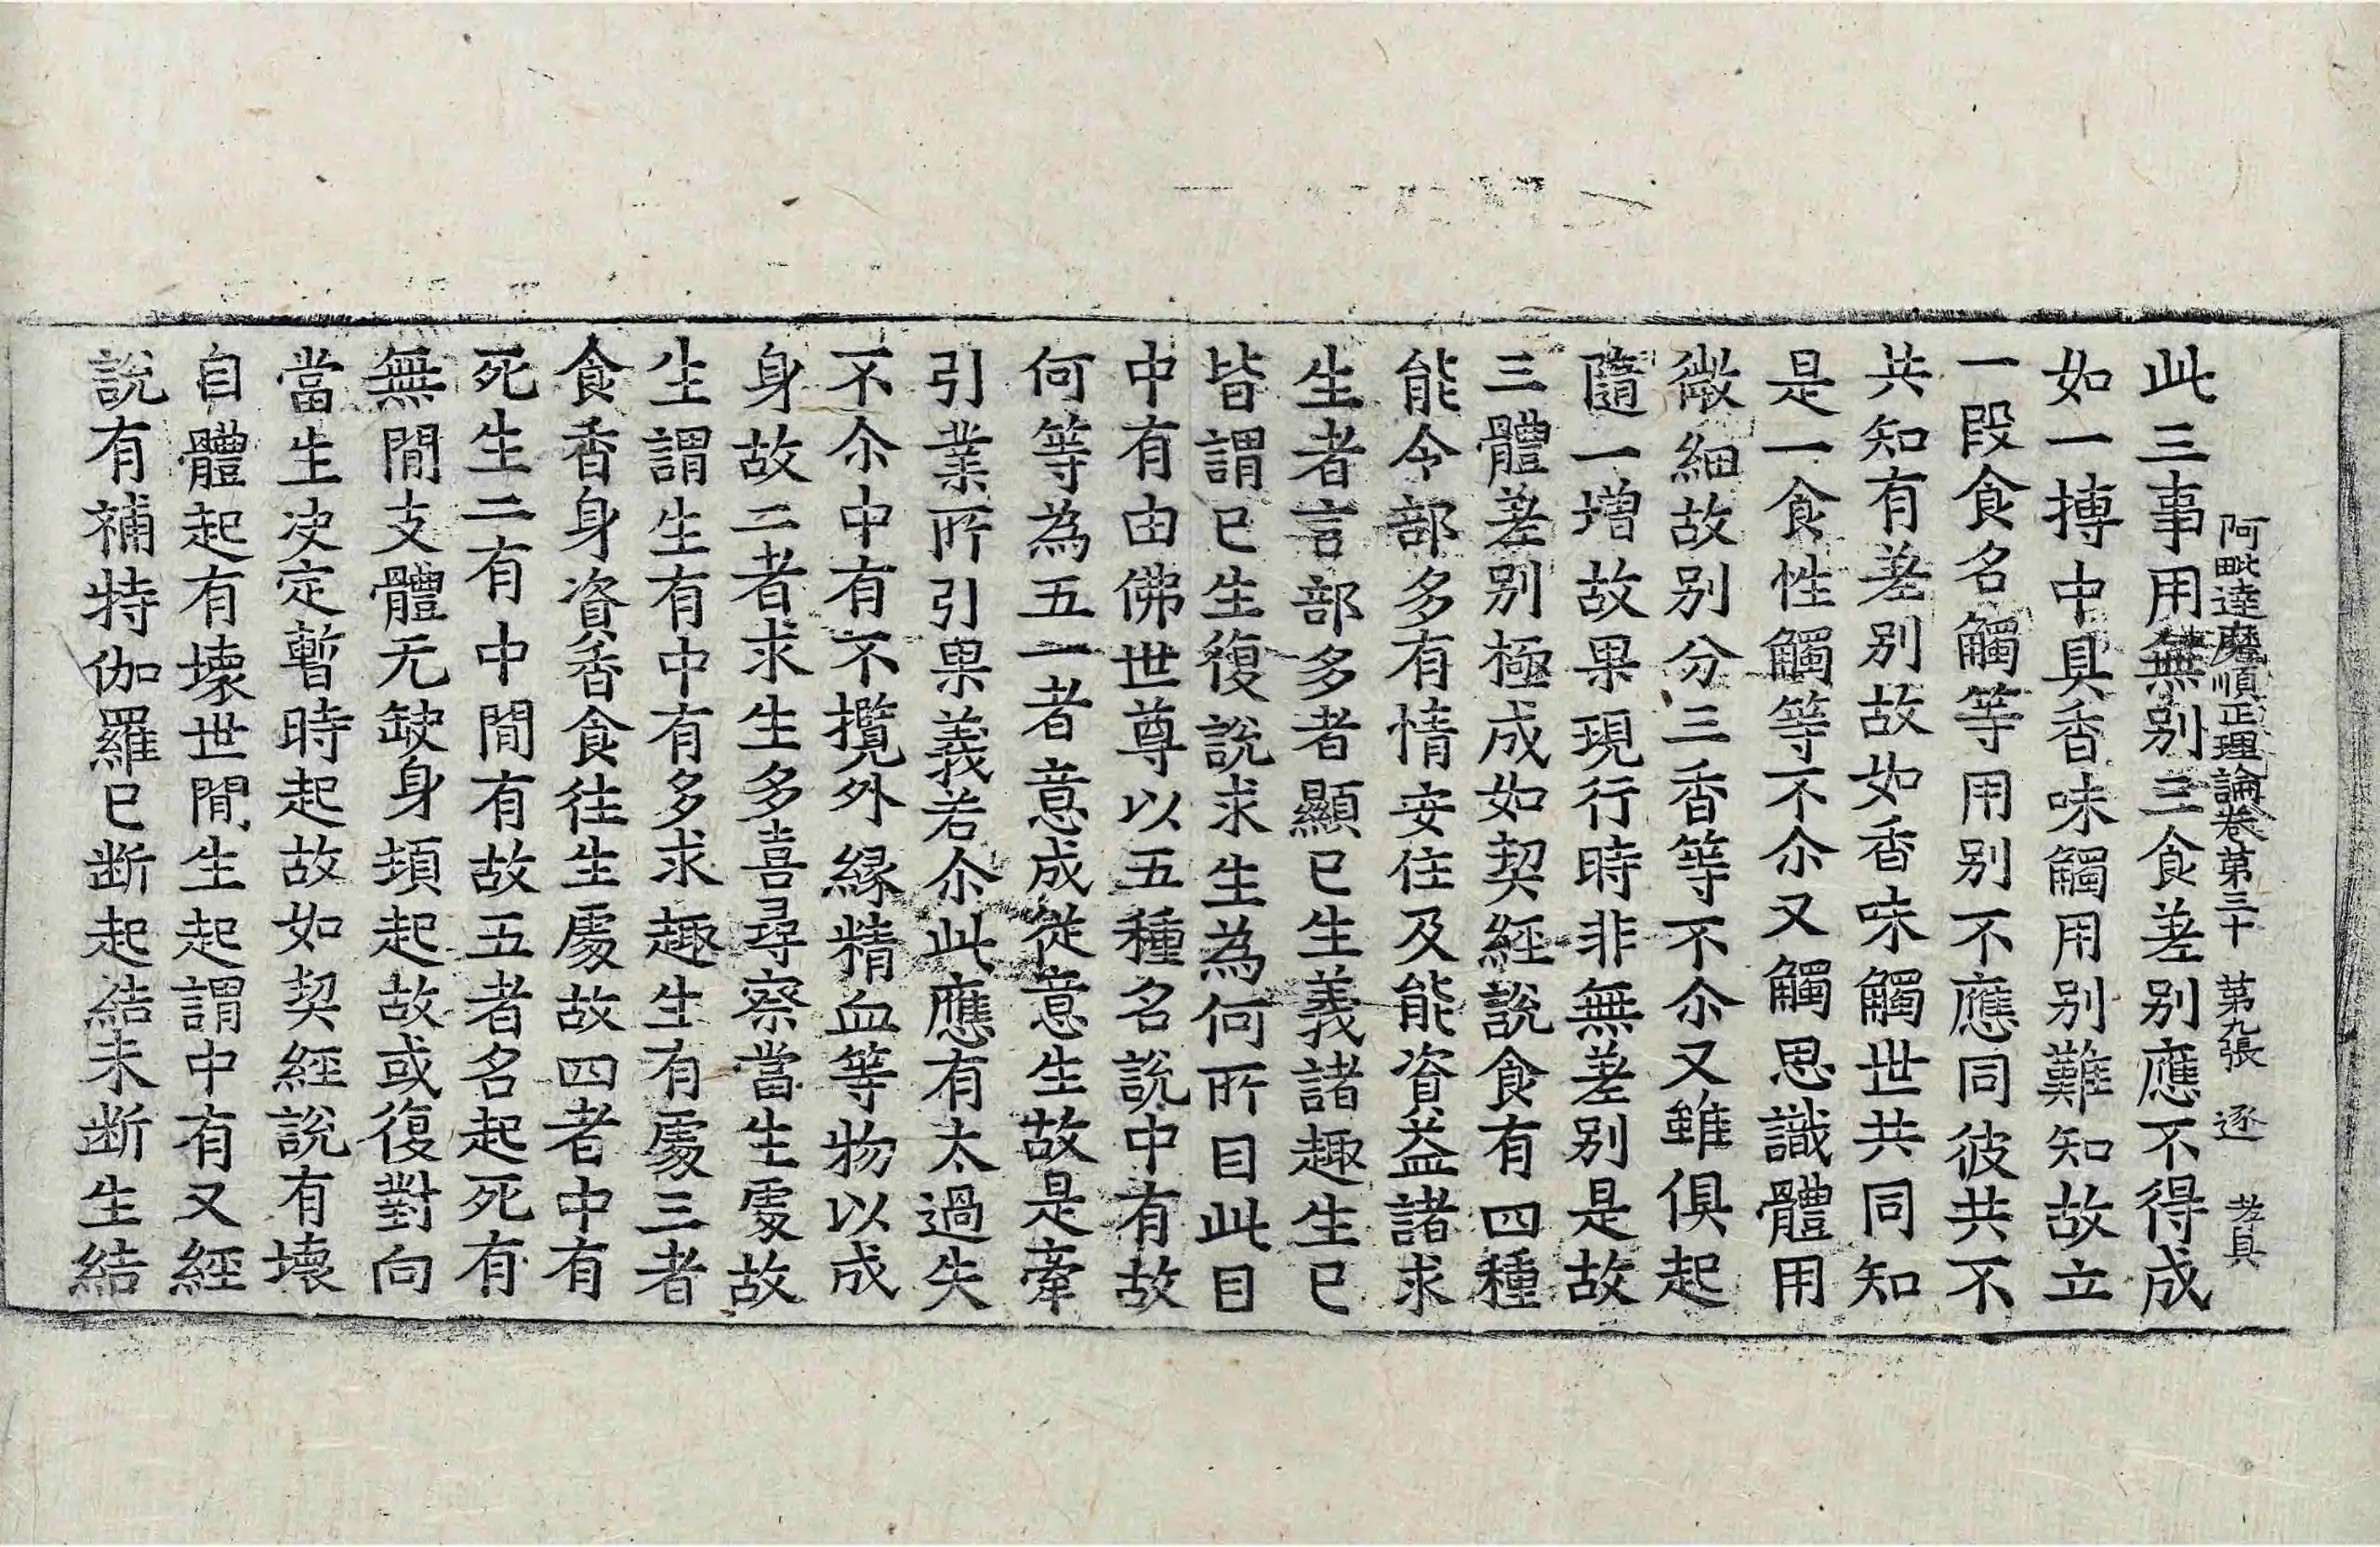 阿毗達磨順正理論卷第三十　第九張　逐　孝具
此三事用無別三食差別應不得成
如一摶中具香味觸用別難知故立
一段食名觸等用別不應同彼共不
共知有差別故如香味觸世共同知
是一食性觸等不尒又觸思識體用
微細故別分三香等不尒又雖俱起
隨一增故果現行時非無差別是故
三體差別極成如契經說食有四種
能令部多有情安住及能資益諸求
生者言部多者顯已生義諸趣生已
皆謂已生復說求生為何所目此目
中有由佛世尊以五種名說中有故
何等為五一者意成從意生故是牽
引業所引果義若尒此應有太過失
不尒中有不攬外緣精血等物以成
身故二者求生多喜尋察當生處故
生謂生有中有多求趣生有處三者
食香身資香食往生處故四者中有
死生二有中間有故五者名起死有
無間支體无缺身頓起故或復對向
當生決定暫時起故如契經說有壞
自體起有壞世間生起謂中有又經
說有補特伽羅已断起結未断生結